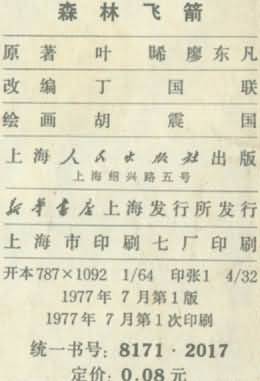 森林飞箭
原著 叶晞 廖东凡
改编 丁国联
绘画 胡震国
上海人民出版社出版
上海绍兴路五号
新华书店上海发行所发行
上海市印刷七厂印刷
开本787×1092 1/64 印张1 4/32
1977年7月第1版
1977年7月第1次印刷
统一书号：8171·2017
定价：0.08元